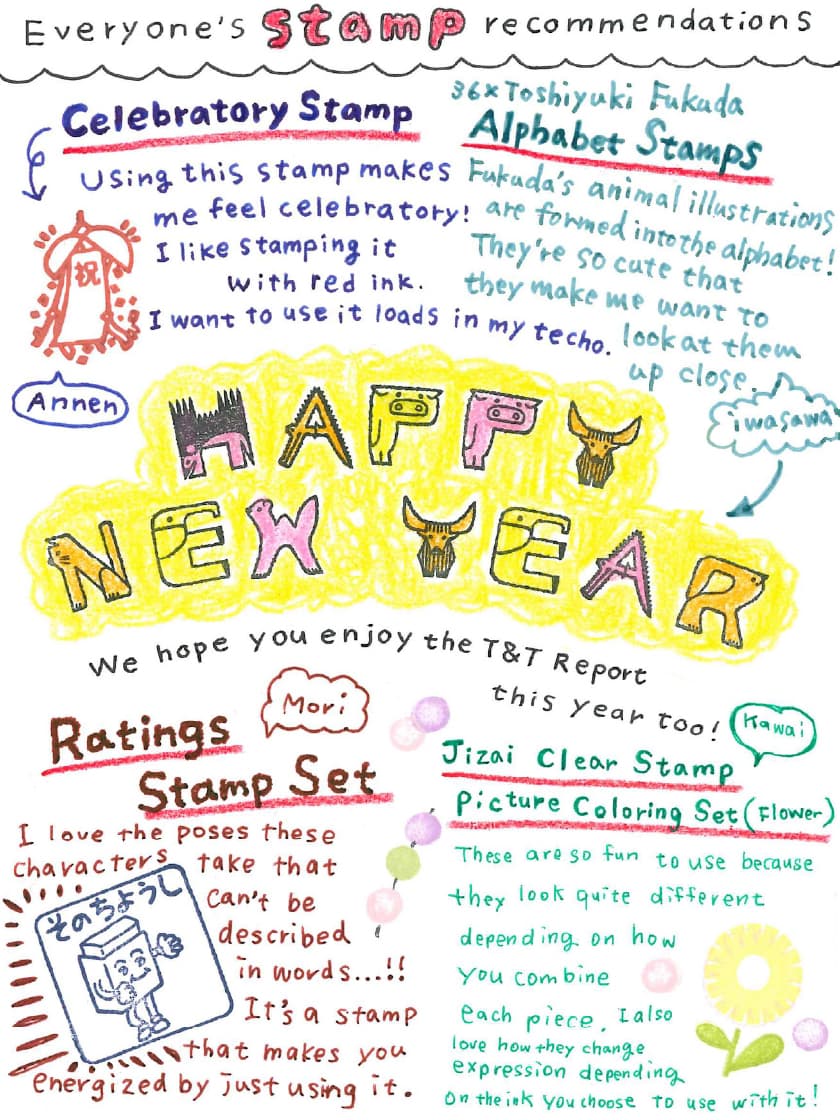 Everyone's stamp recommendations
Celebratory Stamp
Using this stamp makes
me feel celebratory!
I like stamping it
with red ink.
I want to use it loads in my techo.
祝
Annen
36x Toshiyuki Fukuda
Alphabet Stamps
Fukuda's animal illustrations
are formed into the alphabet!
They're so cute that
they make me want to
look at them
up close.
iwasawa
HAPPY
NEW YEAR
We hope you enjoy the T&T Report
this year too!
Mori
Ratings
Stamp Set
I love the poses these
characters take that
can't be
described
in words...!!
It's a stamp
that makes you
energized by just using it.
そのちょうし
Kawai
Jizai Clear Stamp
Picture Coloring Set (Flower)
These are so fun to use because
they look quite different
depending on how
you combine
each piece. I also
love how they change
expression depending
on the ink you choose to use with it!